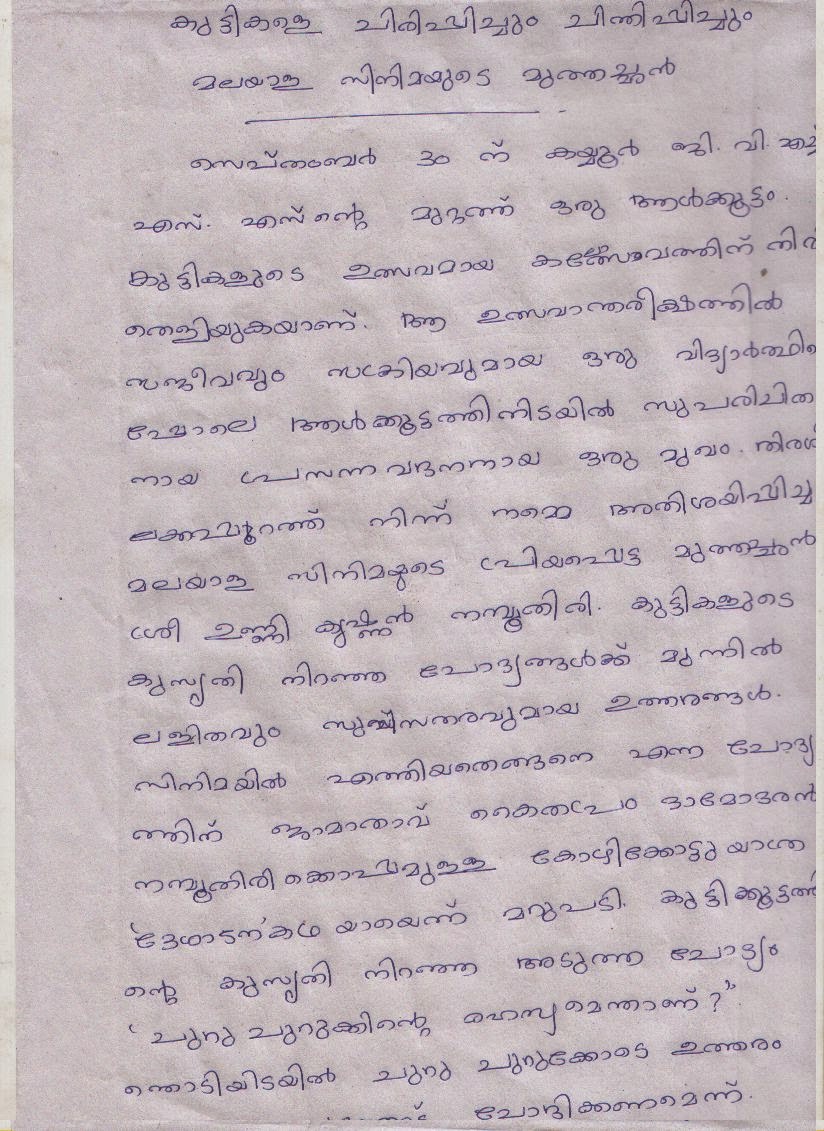 കുട്ടികളെ ചിരിപ്പിച്ചും ചിന്തിപ്പിച്ചും
മലയാള സിനിമയുടെ മുത്തച്ഛൻ
സെപ്തംബർ 30 ന് കയ്യൂർ ജി. വി. എച്ച്
എസ്. എസ് ന്റെ മുറ്റത്ത് ഒരു ആൾക്കൂട്ടം.
കുട്ടികളുടെ ഉത്സവമായ കലോത്സവത്തിന്
തെളിയുകയാണ്. ആ ഉത്സവാന്തരീക്ഷത്തിൽ
സജീവവും സക്രിയവുമായ ഒരു
പോലെ ആൾക്കൂട്ടത്തിനിടയിൽ സുപരിചിത
നായ പ്രസന്ന വദനനായ ഒരു മുഖം.
നിന്ന് നമ്മെ അതിശയിപ്പിച്ച
മലയാള സിനിമയുടെ പ്രിയപ്പെട്ട മുത്തച്ഛൻ
ശ്രീ ഉണ്ണി കൃഷ്ണൻ നമ്പൂതിരി. കുട്ടികളുടെ
കുസൃതി നിറഞ്ഞ ചോദ്യങ്ങൾക്ക് മുന്നിൽ
ലളിതവും സുമ്മിതരവുമായ ഉത്തരങ്ങൾ.
സിനിമയിൽ എത്തിയതെങ്ങനെ എന്ന ചോദ്യ
ത്തിന് ജാമാതാവ് കൈതപ്രം ദാമോദരൻ
നമ്പൂതിരിക്കൊപ്പമുള്ള കോഴിക്കോട്ടു യാത്ര
'ദേശാടന' കഥ യായെന്ന് മറുപടി. കുട്ടിക്കൂട്ടത്തി
ന്റെ കുസൃതി നിറഞ്ഞ അടുത്ത ചോദ്യം
' ചുറു ചുറുക്കിന്റെ രഹസ്യമെന്താണ് ?".
ഞൊടിയിടയിൽ ചുറു ചുറുക്കോടെ ഉത്തരം
ചോദിക്കണമെന്ന്.